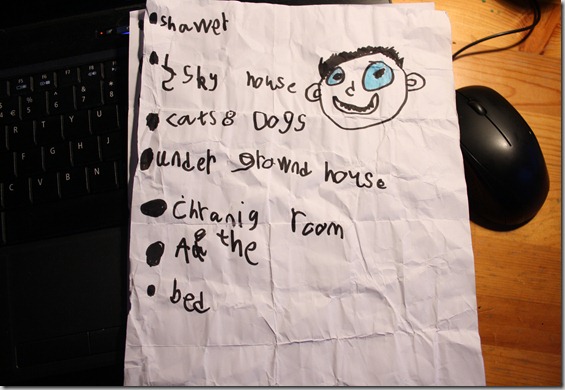 shawer
Sky house
cats & Dogs
under grownd house
chranig room
the
bed